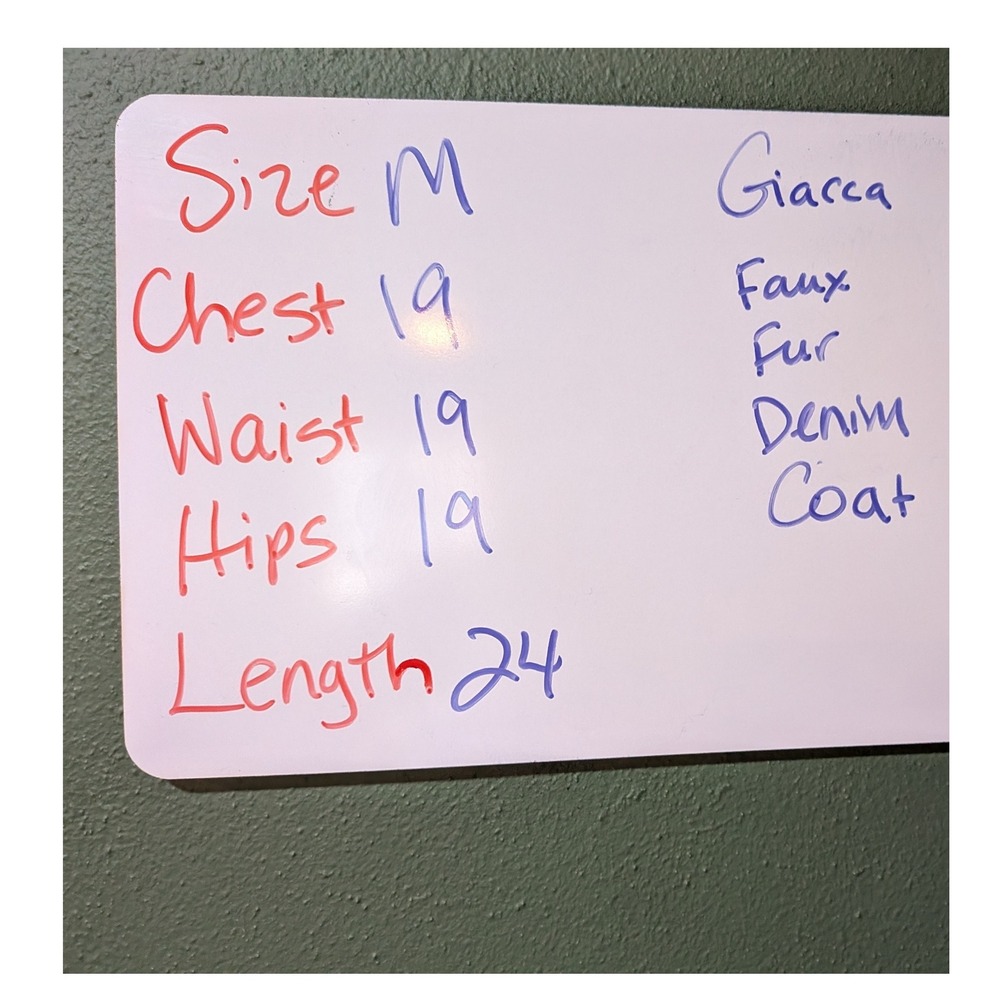 Size M
Chest 19
Waist 19
Hips 19
Length 24
Giacca
Faux
Fur
Denim
Coat